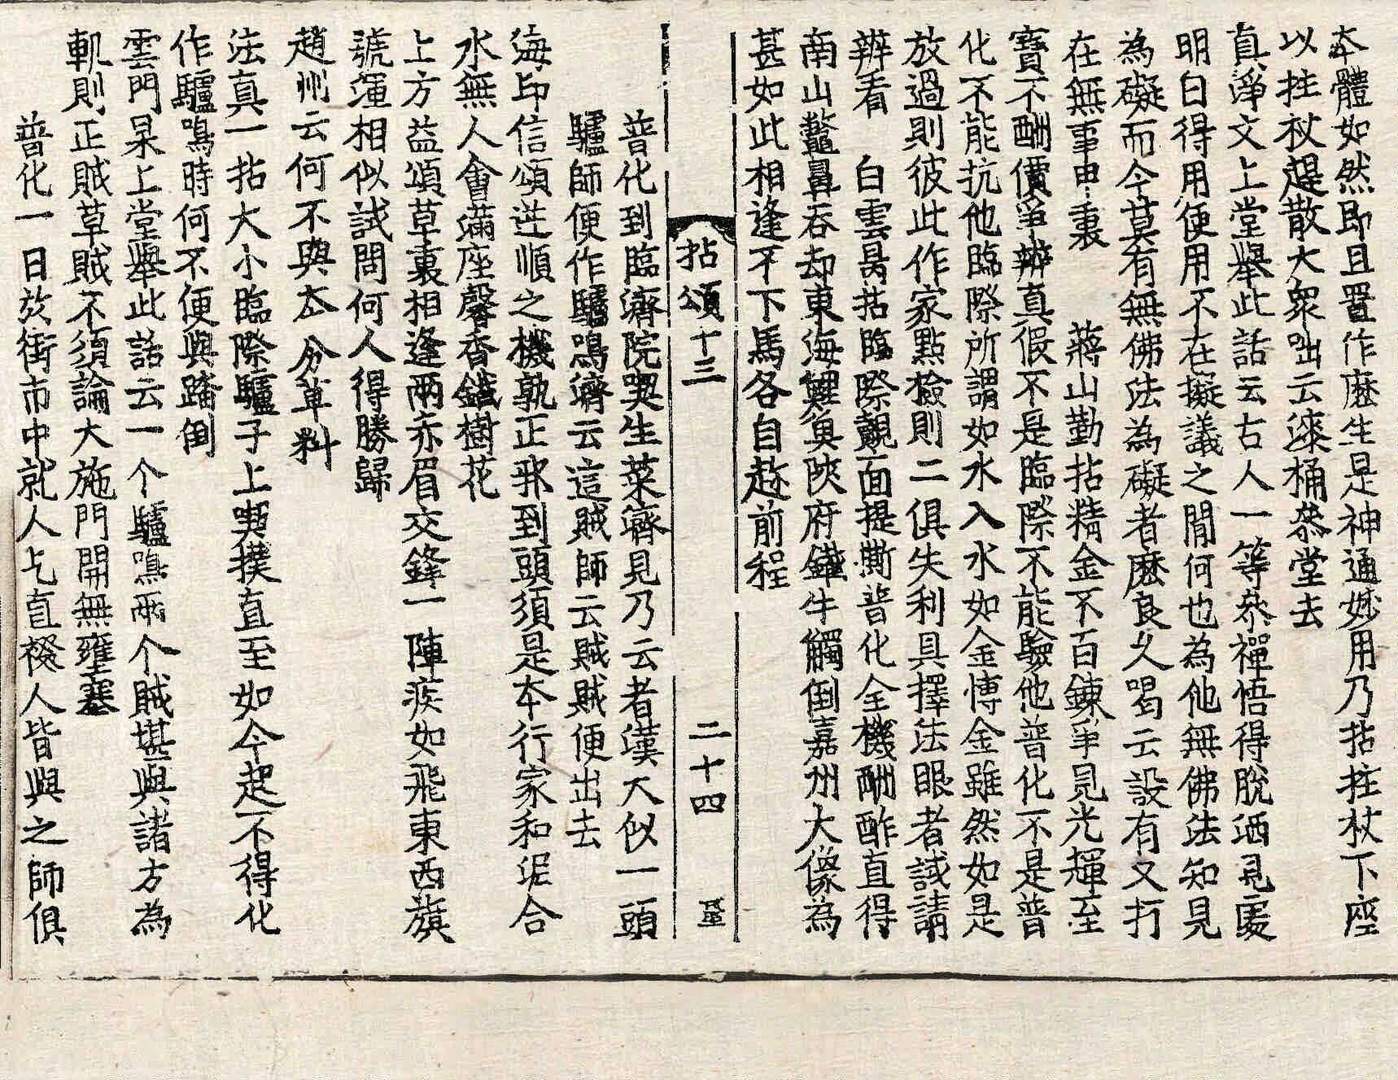 本體如然即且置作麽生是神通妙用乃拈拄杖下座
以拄杖趂散大衆咄云漆桶叅堂去
真淨文上堂舉此話云古人一等叅禪悟得脫洒見處
明白得用便用不在擬議之閒何也為他無佛法知見
為礙而今莫有無佛法為礙者麽良久喝云設有又打
在無事甲裏　蔣山勤拈精金不百鍊爭見光輝至
寶不酬價爭辨真假不是臨際不能驗他普化不是普
化不能抗他臨際所謂如水入水如金博金雖然如是
放過則彼此作家點檢則二俱失利具擇法眼者試請
辨看　白雲昺拈臨際覿面提撕普化全機酬酢直得
南山鼈鼻吞却東海鯉魚陝府鐵牛觸倒嘉州大像為
甚如此相逢不下馬各自趂前程
拈頌十三　二十四
普化到臨濟院喫生菜濟見乃云者漢大似一頭
驢師便作驢鳴濟云這賊師云賊賊便出去
海印信頌逆順之機孰正邪到頭須是本行家和泥合
水無人會滿座馨香鐵樹花
上方益頌草裏相逢兩亦眉交鋒一陣疾如飛東西旗
號渾相似試問何人得勝歸
趙州云何不與夲分草料
法真一拈大小臨際驢子上喫撲直至如今起不得化
作驢鳴時何不便與踏倒
雲門杲上堂舉此話云一个驢鳴兩个賊堪與諸方為
軌則正賊草賊不須論大施門開無壅塞
普化一日於街市中就人乞直裰人皆與之師俱